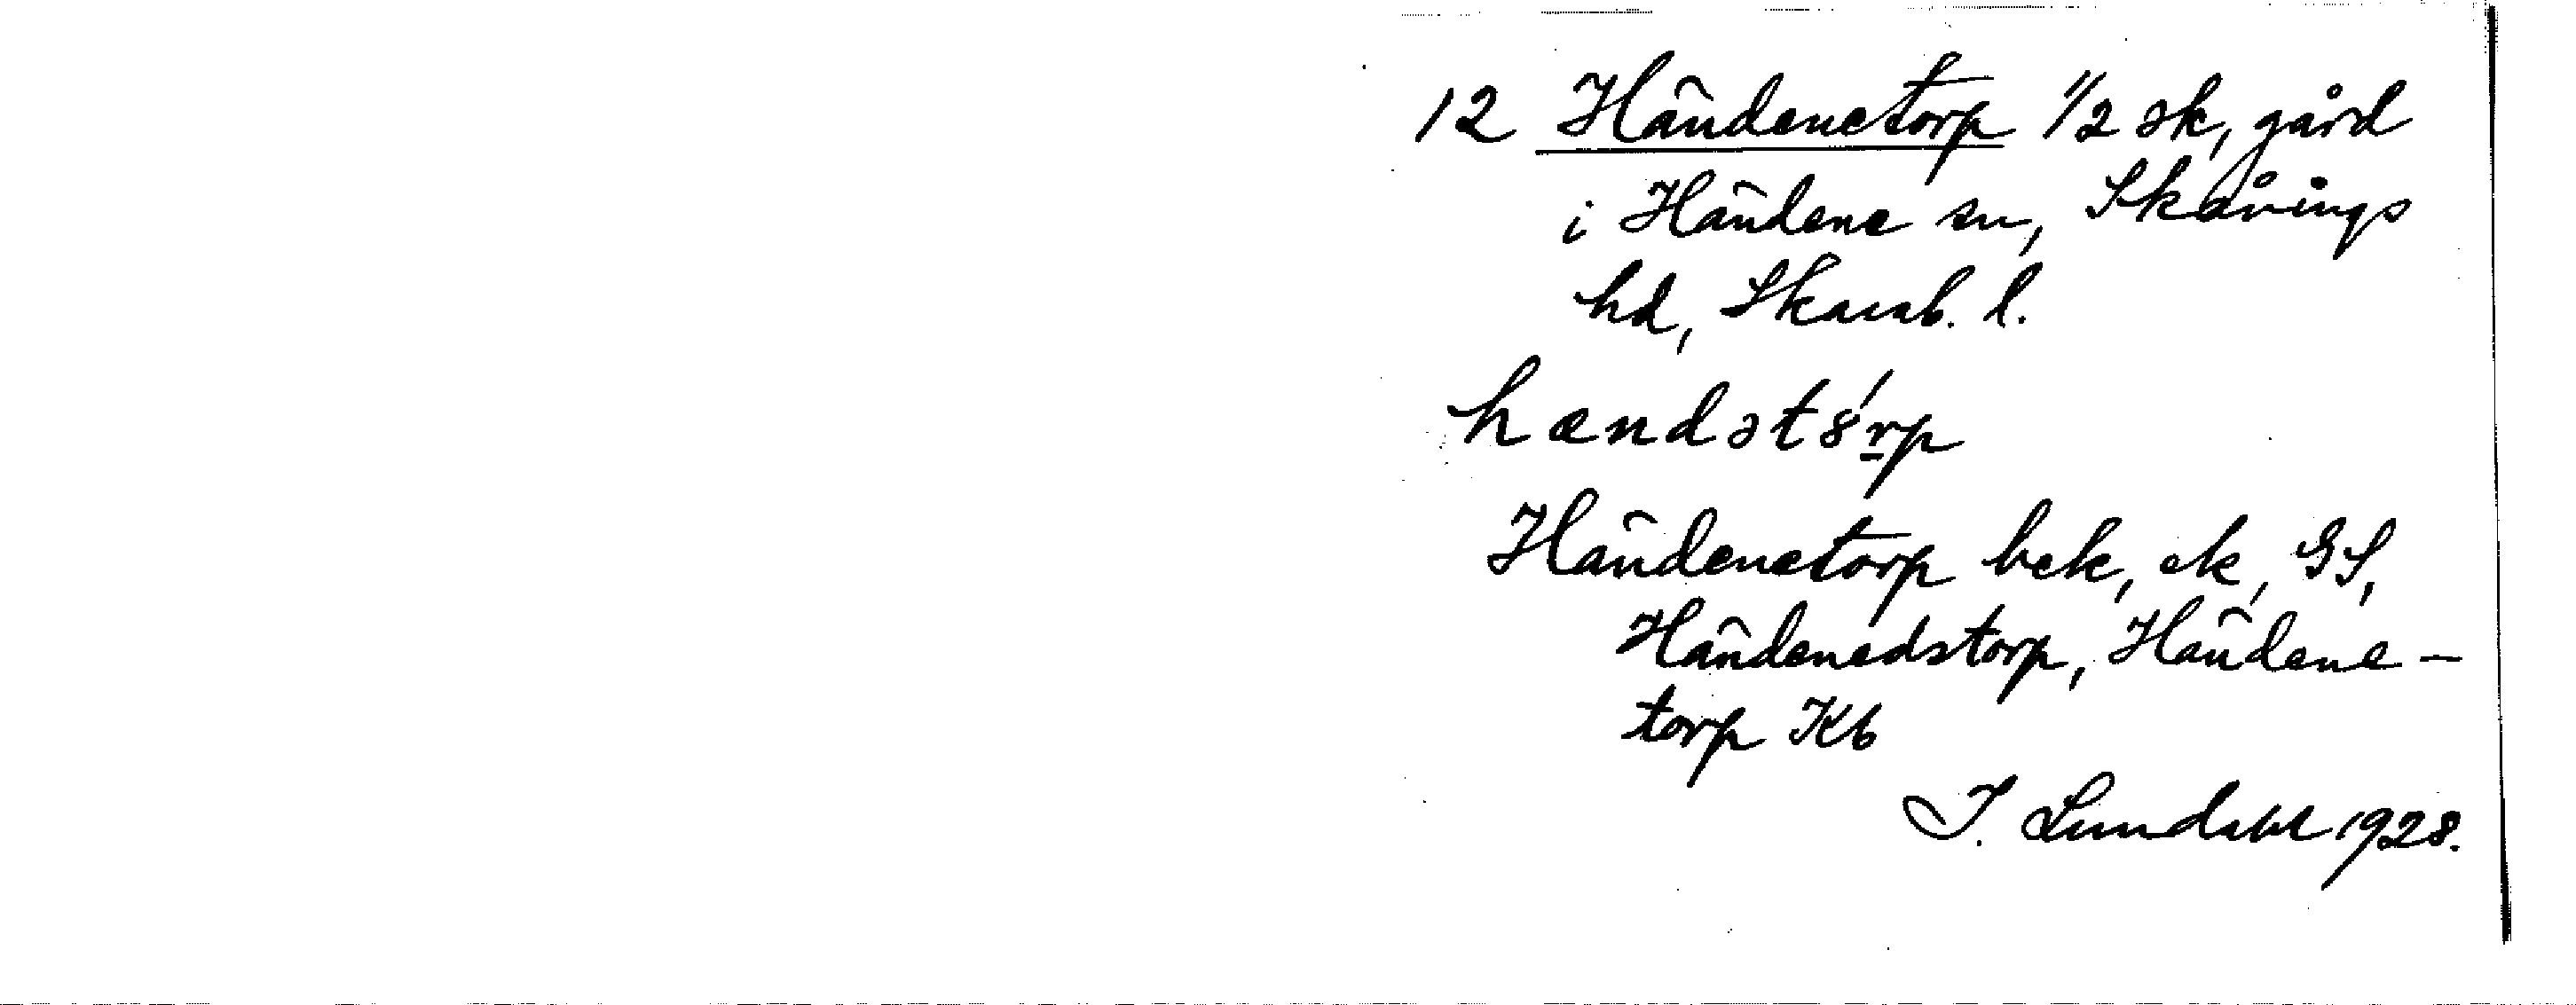 12 Händenetorp 1/2 sk, gård
i Händene sn, Skånings
hd, Skarab. l.
hændət8́r̲p
Händenetorp bek, ek, GS,
Händenedstorp, Händene-
torp Kb
I. Lundahl 1928.